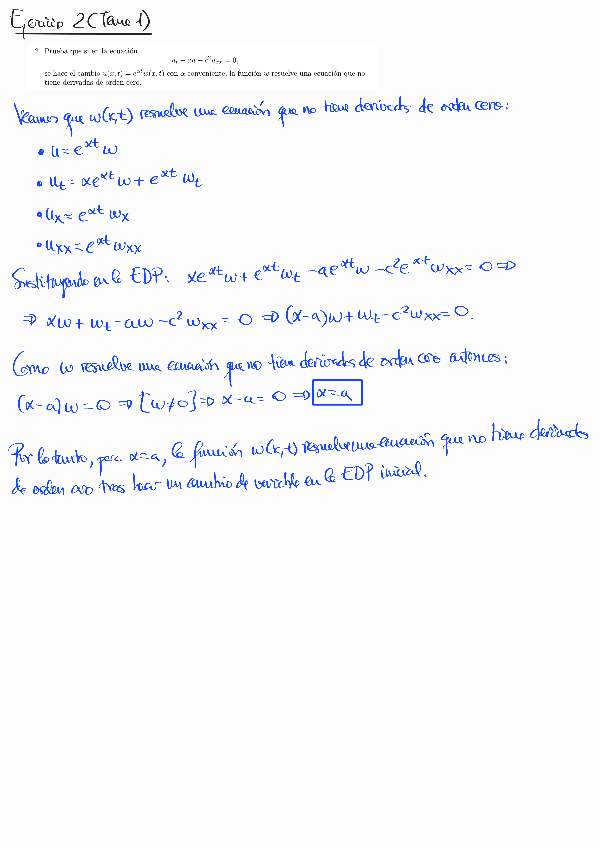 Ejercicio 2 (Tema 1)
2. Prueba que si en la ecuación
u_t − au − c²u_xx = 0,
se hace el cambio u(x, t) = e^{αt}w(x, t) con α conveniente, la función w resuelve una ecuación que no
tiene derivadas de orden cero.
Veamos que w(x,t) resuelve una ecuación que no tiene derivadas de orden cero:
• u = e^{αt} w
• u_t = αe^{αt} w + e^{αt} w_t
• u_x = e^{αt} w_x
• u_xx = e^{αt} w_xx
Sustituyendo en la EDP: αe^{αt}w + e^{αt}w_t − ae^{αt}w − c²e^{αt}w_xx = 0 ⇒
⇒ αw + w_t − aw − c²w_xx = 0 ⇒ (α−a)w + w_t − c²w_xx = 0.
Como w resuelve una ecuación que no tiene derivadas de orden cero entonces:
(α−a)w = 0 ⇒ [w≠0] ⇒ α−a = 0 ⇒ α=a
Por lo tanto, para α=a, la función w(x,t) resuelve una ecuación que no tiene derivadas
de orden cero tras hacer un cambio de variable en la EDP inicial.